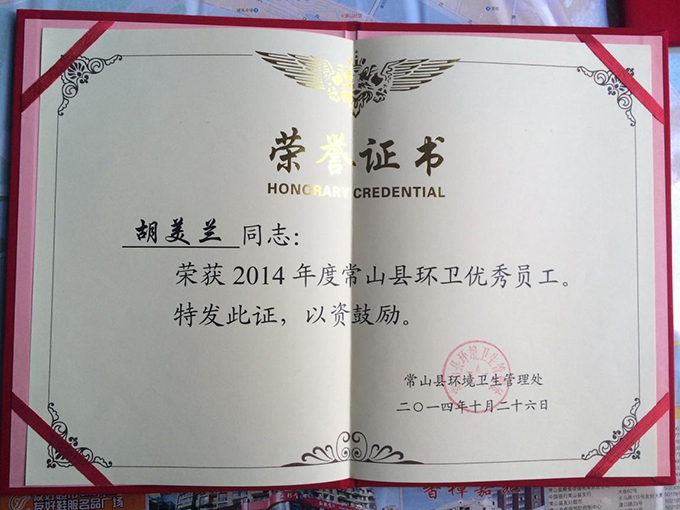 荣誉证书
HONORARY CREDENTIAL
胡美兰 同志：
荣获 2014 年度常山县环卫优秀员工。
特发此证，以资鼓励。
常山县环境卫生管理处
二〇一四年十月二十六日
友好鞋服名品广场